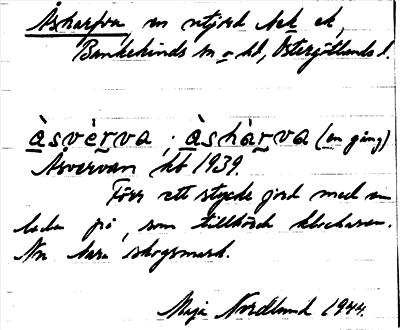 Åsharfva, en utjord
Bankekinds sn o hd, Östergötlands l.
àsvèrva ; àshàrva (en gång)
Asvervan kb 1939.
Förr ett stycke jord med en
lada på, som tillhörde klockaren.
Nu bara skogsmark.
Maja Nordlund 1944.